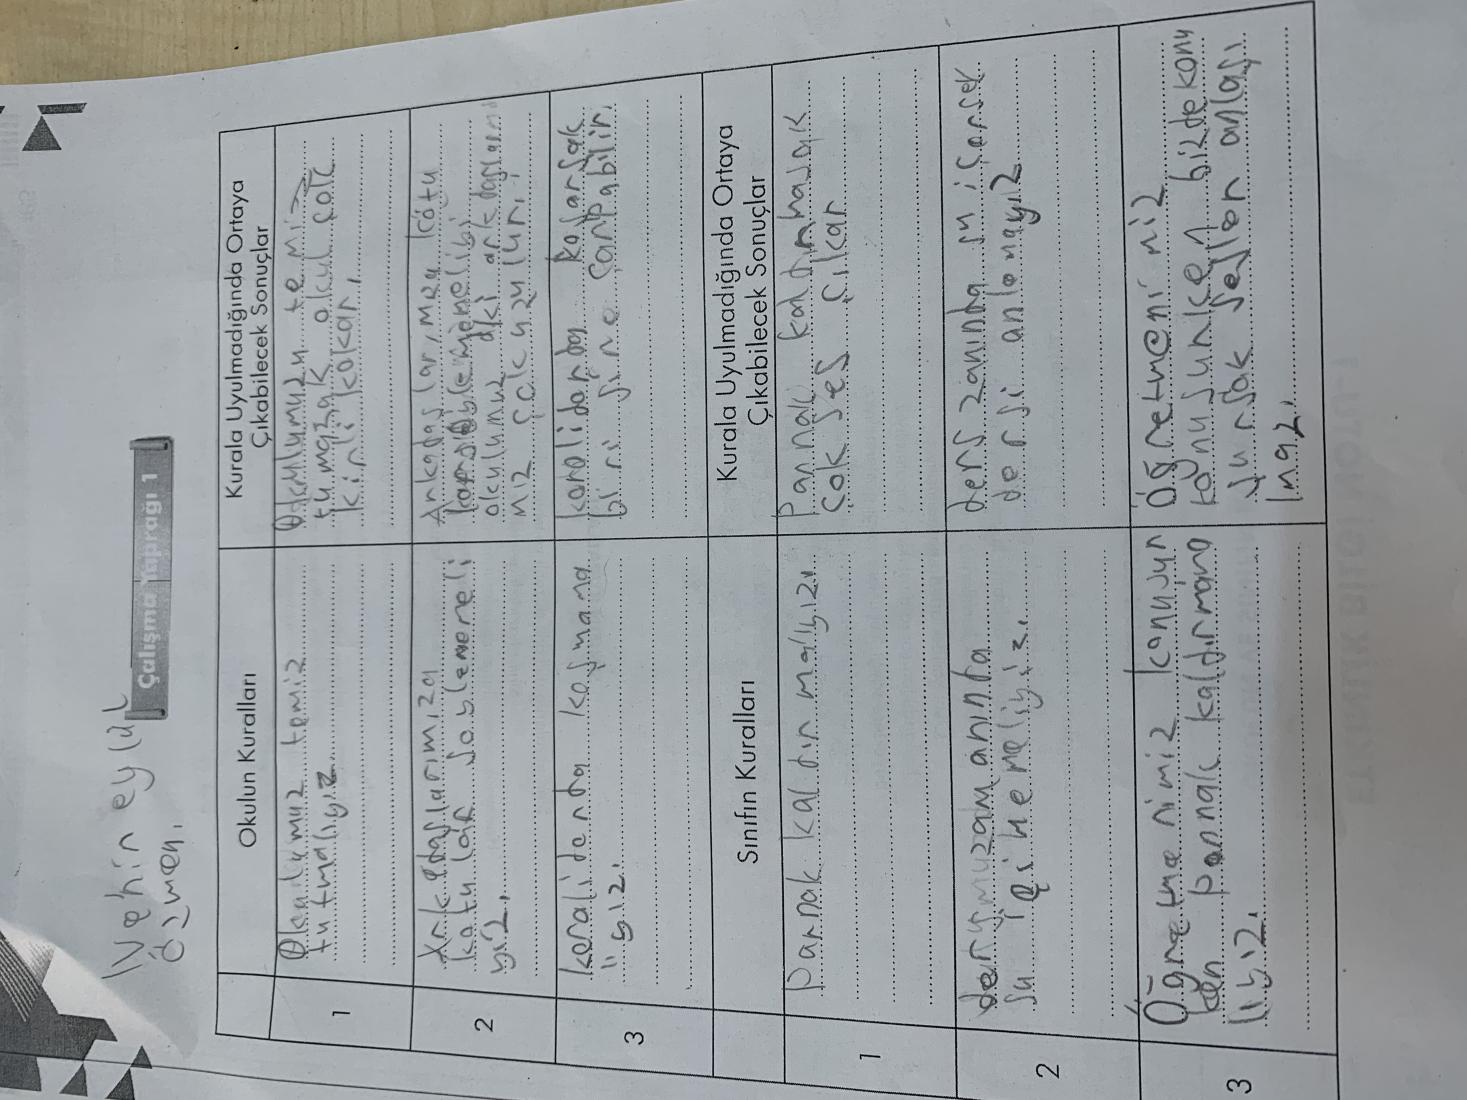 ey lül
özmen.
Çalışma Yaprağı 1
Okulun Kuralları
Kurala Uyulmadığında Ortaya
Çıkabilecek Sonuçlar
1
Okulumuz temiz
tutmalıyız
Okulumuzu temiz
tutmazsak okul çok
kirli kokar,
2
Arkadaşlarımıza
kötü laf soylememeli
yiz.
Ankadaşlar, mıza kötü
okulunuz daki arkdaşlarımı
mız çok üzülür,
3
koralidenda koşmama
lıyız.
koralidorda koşarsak
biri sine çarpabilir,
Sınıfın Kuralları
Kurala Uyulmadığında Ortaya
Çıkabilecek Sonuçlar
1
Parnak kaldır malıyız.
Parmak kaldırmasak
çok ses çıkar
2
su içmemeliyiz.
ders zanında su içersek
dersi anlamayız
3
Öğretmenimiz konuşur
ken parmak kaldırmama
lıyız.
Öğretmenimiz
konuşurken bizde konu
şursak sesler anlaşı
lmaz.